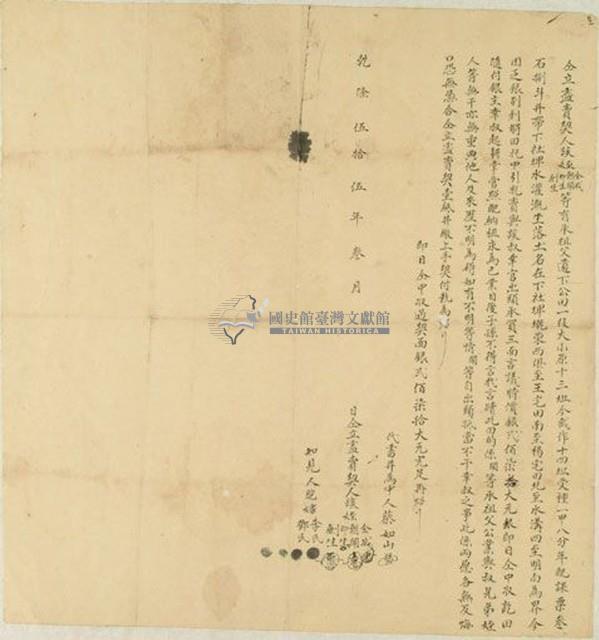 仝立盡賣契人族姪 金成 朝開 即生 創生 等有承祖父遺下公田一段大小原十三坵今截作十四坵受種一甲八分年配課粟叁
石捌斗并帶下社埤水灌溉坐落土名在下社埤墘東西俱至王宅田南至楊宅田北至水溝四至明南為界今
因乏銀別創將田托中引就賣與族叔章官出頭承買三面言議時價銀弍佰柒拾大元銀即日仝中收訖田
隨付銀主章叔起耕掌管照配納租永為己業日後子孫不得言找言贖此田的係開等承祖父公業與叔兄弟姪
人等無干亦無重典他人及來歷不明為碍如有不明等情開等自出頭抵當不干章叔之事此係兩愿各無反悔
口恐無憑合仝立盡賣契壹紙并繳上手契付執為炤
即日仝中收過契面銀弍佰柒拾大元完足再炤
代書并為中人蔡如山
日仝立盡賣契人族姪 金成 朝開 即生 創生
知見人 李氏 鄭氏
乾隆伍拾伍年叁月
國史館臺灣文獻館
TAIWAN HISTORICA